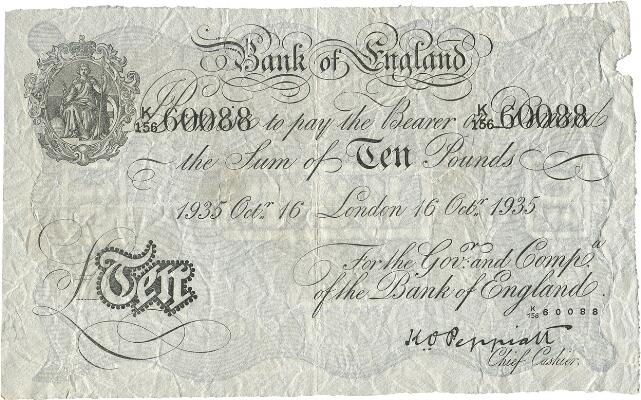 Bank of England
K/156 60088 K/156 60088
I Promise to pay the Bearer on Demand
the Sum of Ten Pounds
1935 Octr. 16 London 16 Octr. 1935
For the Govr. and Compa.
of the Bank of England.
£Ten
K/156 60088
K O Peppiatt
Chief Cashier.